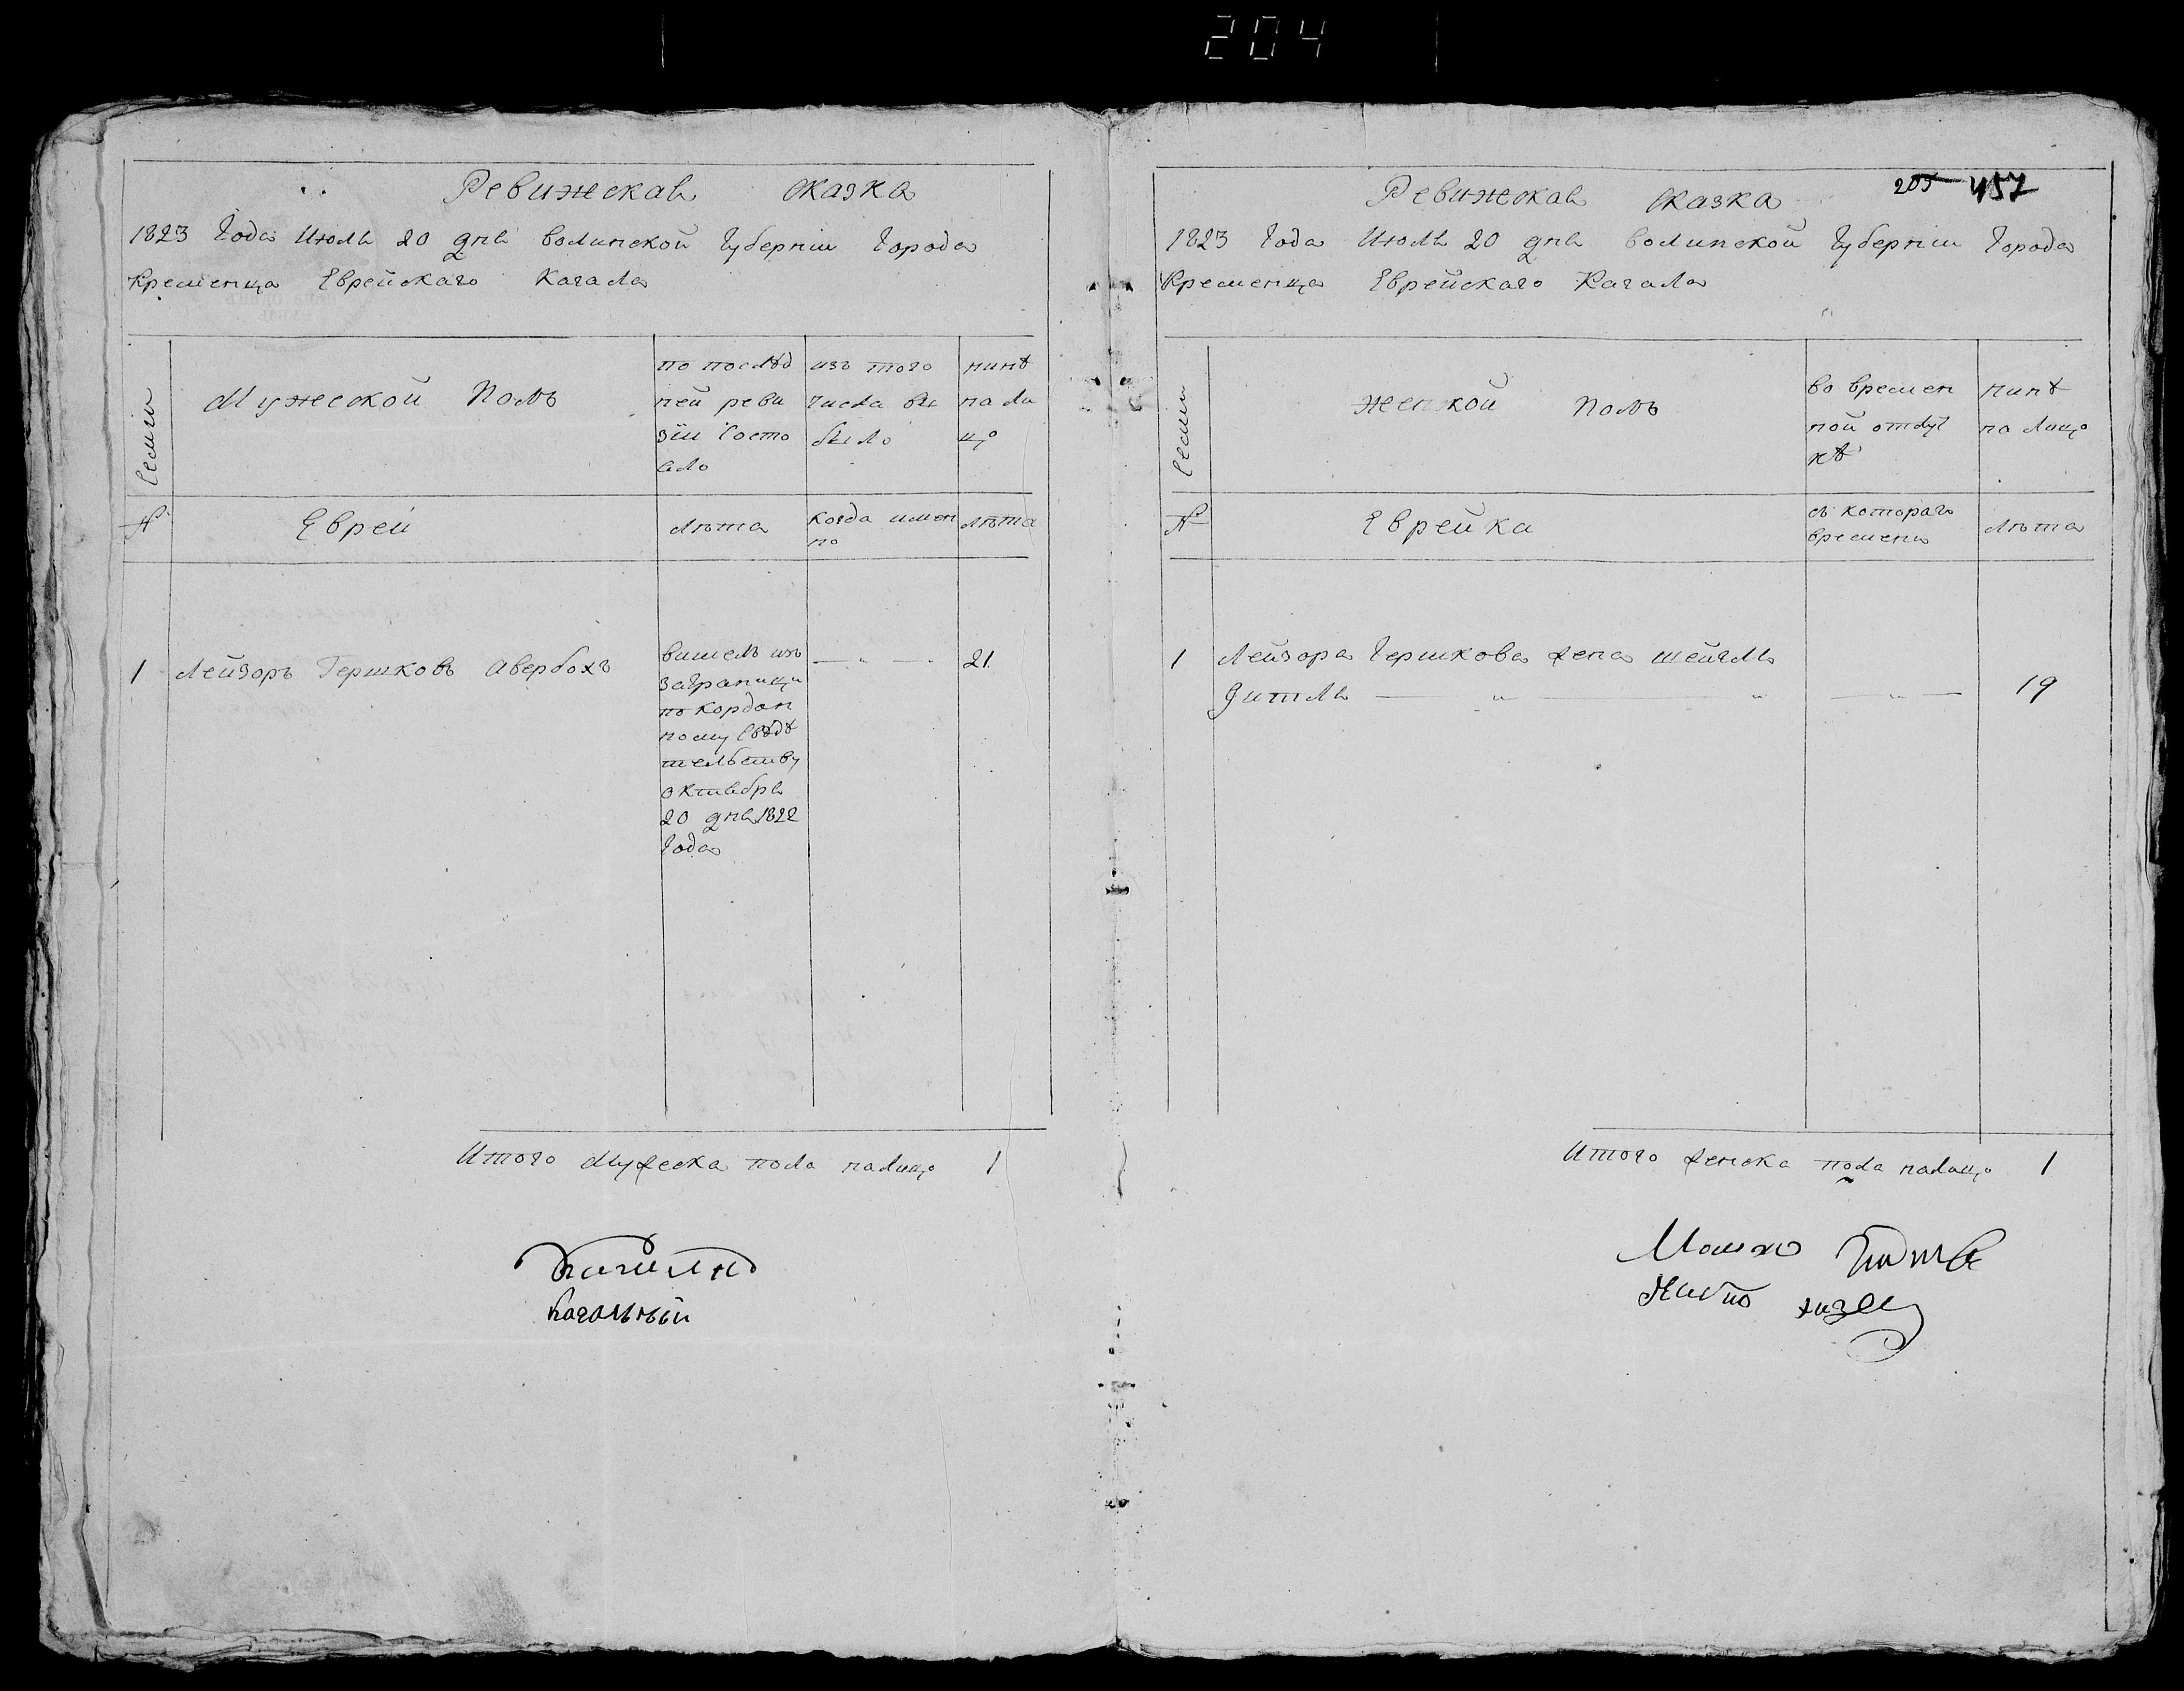 204
Ревижская сказка
1823 Года Июля 20 дня волинской Губернии Города
Кременца Еврейскаго Кагала
Семьи
Мужеской Полъ
по послѣд
ней реви
зіи Состо
яло
изъ того
числа вы
было
нинѣ
на ли
цо
№
Еврей
лѣта
когда имен
но
лѣта
1 Лейзоръ Гершковъ Авербохъ
вишелъ изъ
заграници
по кордон
ному Свѣдѣ
тельству
октября
20 дня 1822
Года
21
Итого мужеска пола налицо 1
Кагальный
205 457
Ревижская сказка
1823 Года Июля 20 дня волинской Губернии Города
Кременца Еврейскаго Кагала
Семьи
Женской Полъ
во времен
ной отлуч
кѣ
нинѣ
на лицо
№
Еврейка
съ котораго
времени
лѣта
1 Лейзора Гершкова жена шейгля
Дитля 19
Итого женска пола налицо 1
Мошко